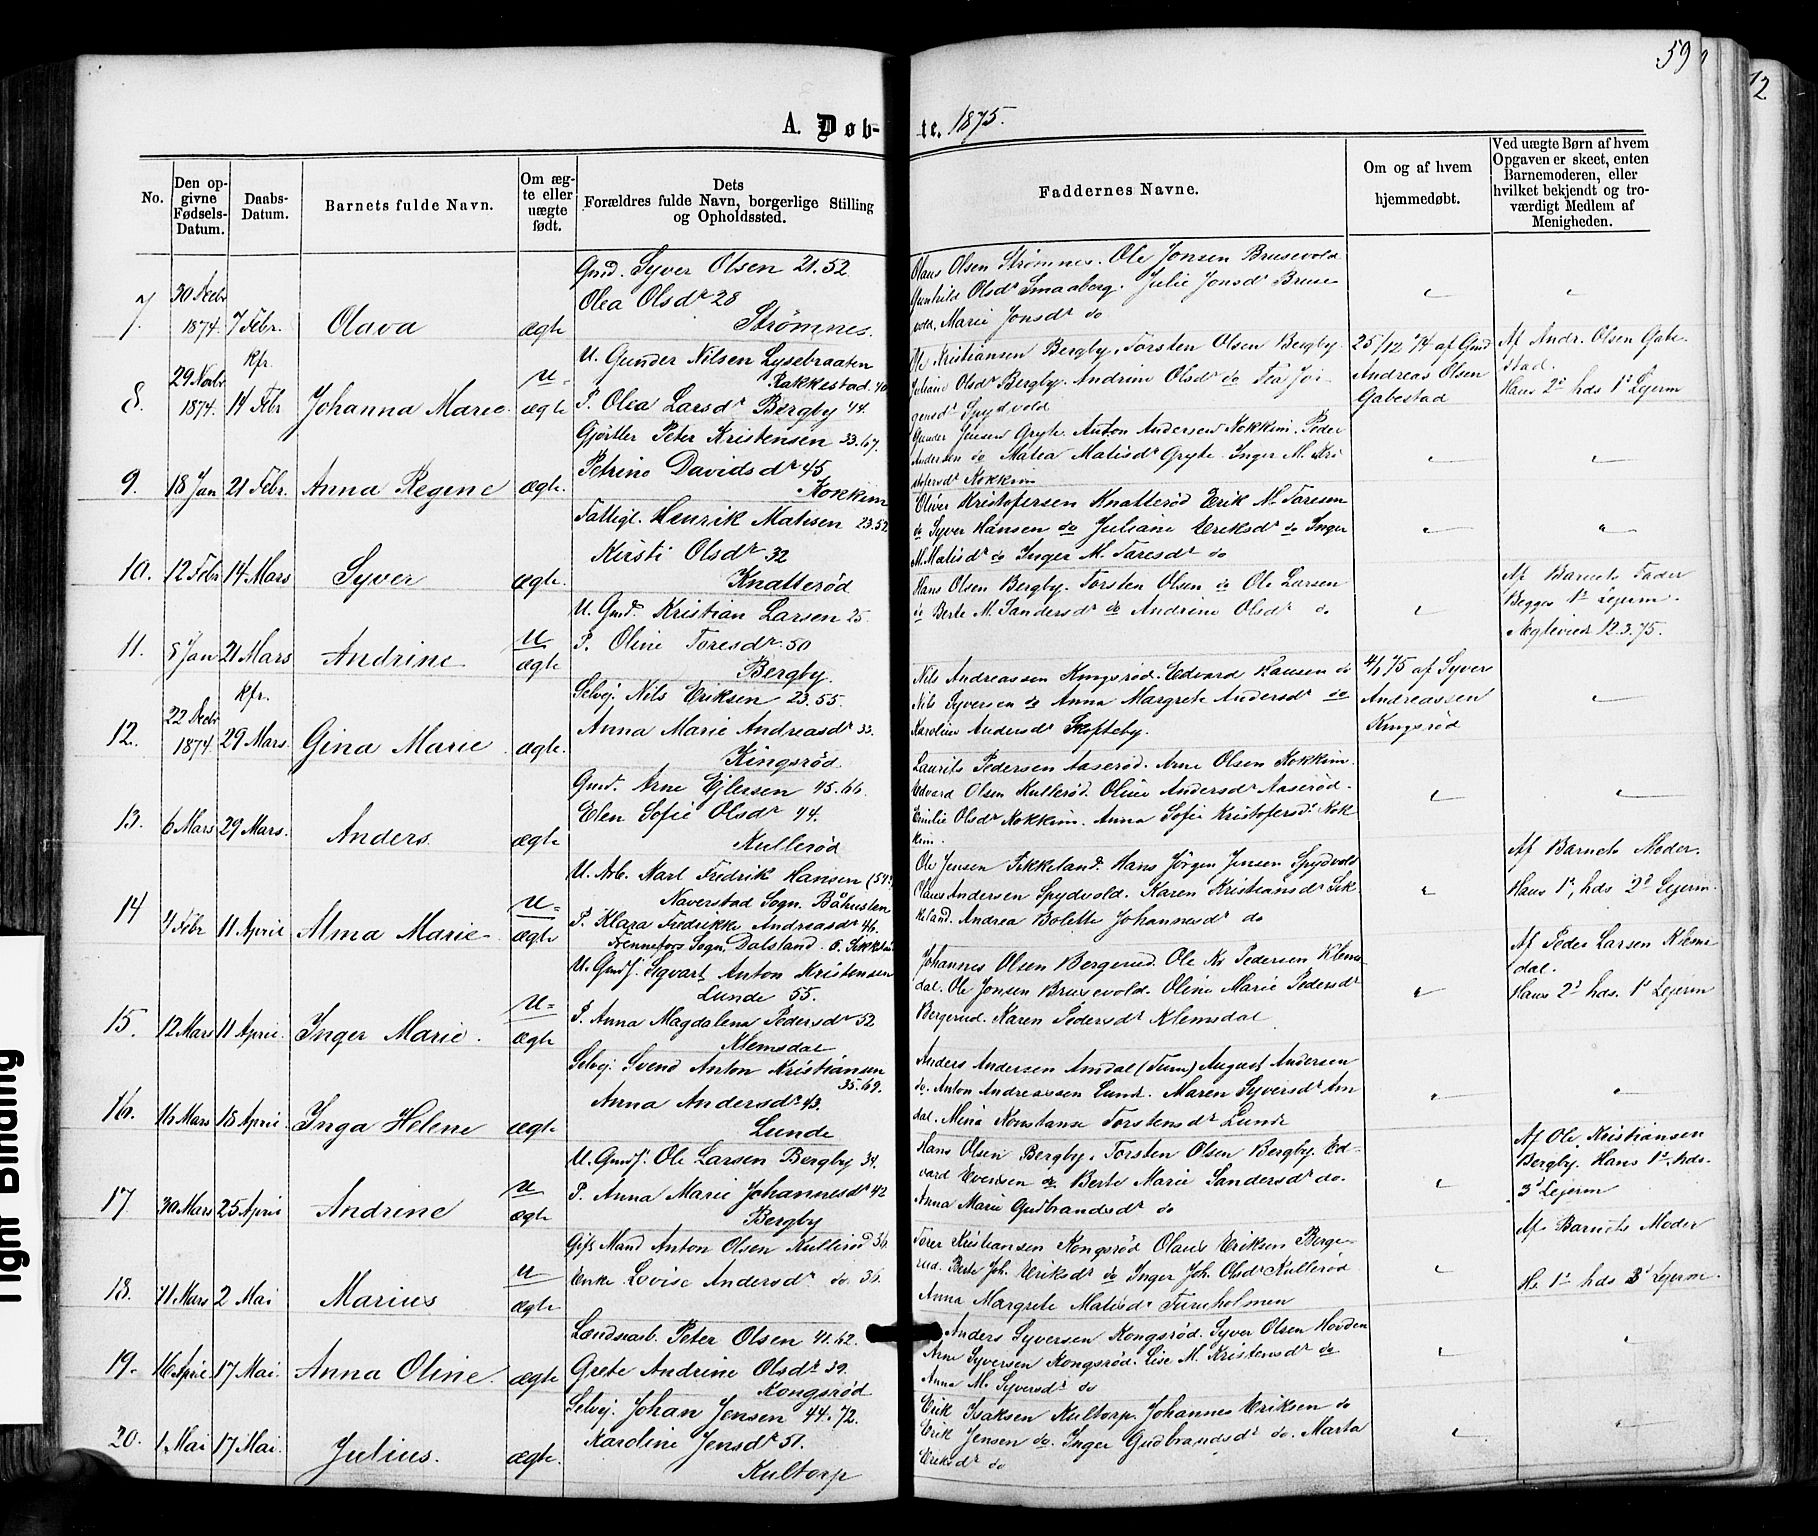 59
12
A. Døb- te. 1875.
No.
Den op-
givne
Fødsels-
Datum.
Daabs-
Datum.
Barnets fulde Navn.
Om æg-
te eller
uægte
født.
Dets
Forældres fulde Navn, borgerlige Stilling
og Opholdssted.
Faddernes Navne.
Om og af hvem
hjemmedøbt.
Ved uægte Børn af hvem
Opgaven er skeet, enten
Barnemoderen, eller
hvilket bekjendt og tro-
værdigt Medlem af
Menigheden.
7. 30 Decbr 1874. 7 Febr. Olava ægte
Gmd. Syver Olsen 21.52
Olea Olsdr 28
Strømnes.
Olaus Olsen Strømnes. Ole Jonsen Brusevold
Gunhild Olsdr Smaaberg. Julie Jonsdr Bruse
vold, Marie Jonsdr do
8. 29 Novbr 1874. kfr. 14 Febr Johanna Marie u- ægte
U. Gunder Nilsen Lysebraaten
Rakkestad 40
P. Olea Larsdr Bergby 44.
Ole Kristiansen Bergby, Torsten Olsen Bergby
Johanne Olsdr Bergby. Andrine Olsdr do Tea Jør
gensdr Spydvold
25/12 74 af Gmd
Andreas Olsen
Gabestad
Af Andr. Olsen Gabe-
stad.
Hans 2d hds 1st Lejerm
9. 18 Jan 21 Febr. Anna Regine ægte.
Gjørtler Peter Kristensen 33.67.
Petrine Davidsdr 45
Kokkim
Gunder Jensen Gryte. Anton Andersen Kokkim. Peder
Andersen do Matea Matisdr Gryte. Inger M. Kri
stofersdr Kokkim
10. 12 Febr 14 Mars Syver ægte.
Fattigl. Henrik Matisen 23.52
Kirsti Olsdr 32
Knatterød
Oliver Kristofersen Knatterød Erik M. Taresen
do Syver Hansen do Juliane Eriksdr do Inger
M. Matisdr do Inger M. Taresdr do
11. 5 Jan 21 Mars Andrine u ægte
U. Gmd. Kristian Larsen 25.
P. Oline Toresdr 50
Bergby.
Hans Olsen Bergby. Torsten Olsen do Ole Larsen
do Berte M. Sandersdr do Andrine Olsdr do
Af Barnets Fader
Begges 1st Lejerm.
Ægteviede 12.3.75.
12. 22 Decbr 1874. kfr. 29 Mars. Gina Marie ægte.
Selvej. Nils Eriksen 23.55.
Anna Marie Andreasdr 33.
Kingsrød.
Nils Andreassen Kingsrød. Edvard Hansen do
Nils Syversen do Anna Margrete Andersdr do
Karoline Andersdr Skofteby.
4/1 75 af Syver
Andreassen
Kingsrød
13. 6 Mars 29 Mars. Anders. ægte
Gmd. Arne Ejlersen 45.66.
Elen Sofie Olsdr 44.
Kullerød
Laurits Pedersen Aaserød. Arne Olsen Kokkim.
Edvard Olsen Kullerød. Oline Andersdr Aaserød.
Emilie Olsdr Kokkim. Anna Sofie Kristofersdr Kok
kim.
14 4 Febr 11 April Alma Marie u- ægte
U. Arb. Karl Fredrik Hansen
Naverstad Sogn. Båhuslen
P. Klara Fredrikke Andreasdr 46.
Fennefors Sogn, Dalsland. o. Sikkela
Ole Jensen Sikkeland. Hans Jørgen Jensen Spydvold
Olaus Andersen Spydvold. Karen Kristiansdr Sik
keland. Andrea Bolette Johannesdr do
Af Barnets Moder.
Hans 1st, hds 2d Lejerm.
15. 12 Mars 11 April. Inger Marie. u- ægte
U. Gmdf. Sigvart Anton Kristensen
Lunde 55.
P. Anna Magdalena Pedersdr 52
Klemsdal
Johannes Olsen Bergerud. Ole Kr Pedersen Klems
dal. Ole Jonsen Brusevold. Oline Marie Pedersdr
Bergerud. Karen Pedersdr Klemsdal
Af Peder Larsen Klems
dal.
Hans 2d hds. 1st Lejerm
16. 16 Mars 18 April. Inga Helene ægte
Selvej. Svend Anton Kristiansen
35.69.
Anna Andersdr 43.
Lunde
Anders Andersen Amdal (Tum) August Andersen
do. Anton Andreassen Lund. Maren Syversdr Am
dal. Mina Konstanse Torstensdr Lunde
17. 30 Mars 25 April Andrine u ægte
U. Gmdf. Ole Larsen Bergby 34.
P. Anna Marie Johannesdr 42
Bergby
Hans Olsen Bergby, Torsten Olsen Bergby. Ed-
vard Evensen do Berte Marie Sandersdr do.
Anna Marie Gudbrandsdr do
Af Ole Kristiansen
Bergby. Hans 1st, hds.
3d Lejerm
18. 11 Mars 2 Mai Marius u ægte.
Gift Mand Anton Olsen Kullerød 36.
Enke Lovise Andersdr do. 36.
Torer Kristiansen Kongsrød Olaus Eriksen Berge-
rud. Berte Joh. Eriksdr do Inger Joh. Olsdr Kullerød
Anna Margrete Matisdr Furuholmen
Af Barnets Moder
Hs. 1st hds 3d Lejerm.
19. 16 April 17 Mai. Anna Oline. ægte
Landsarb. Peter Olsen 41.62.
Grete Andrine Olsdr 39.
Kongsrød
Anders Syversen Kongsrød. Syver Olsen Hovden
Arne Syversen Kongsrød. Lise M. Kristensdr do
Anna M. Syversdr do
20. 1 Mai 17 Mai. Julius. ægte.
Selvej. Johan Jensen 44.72.
Karoline Jensdr 51.
Kultorp
Erik Isaksen Kultorp. Johannes Eriksen do
Erik Jensen do. Inger Gudbrandsdr do. Marta
Eriksdr do
Tight Binding